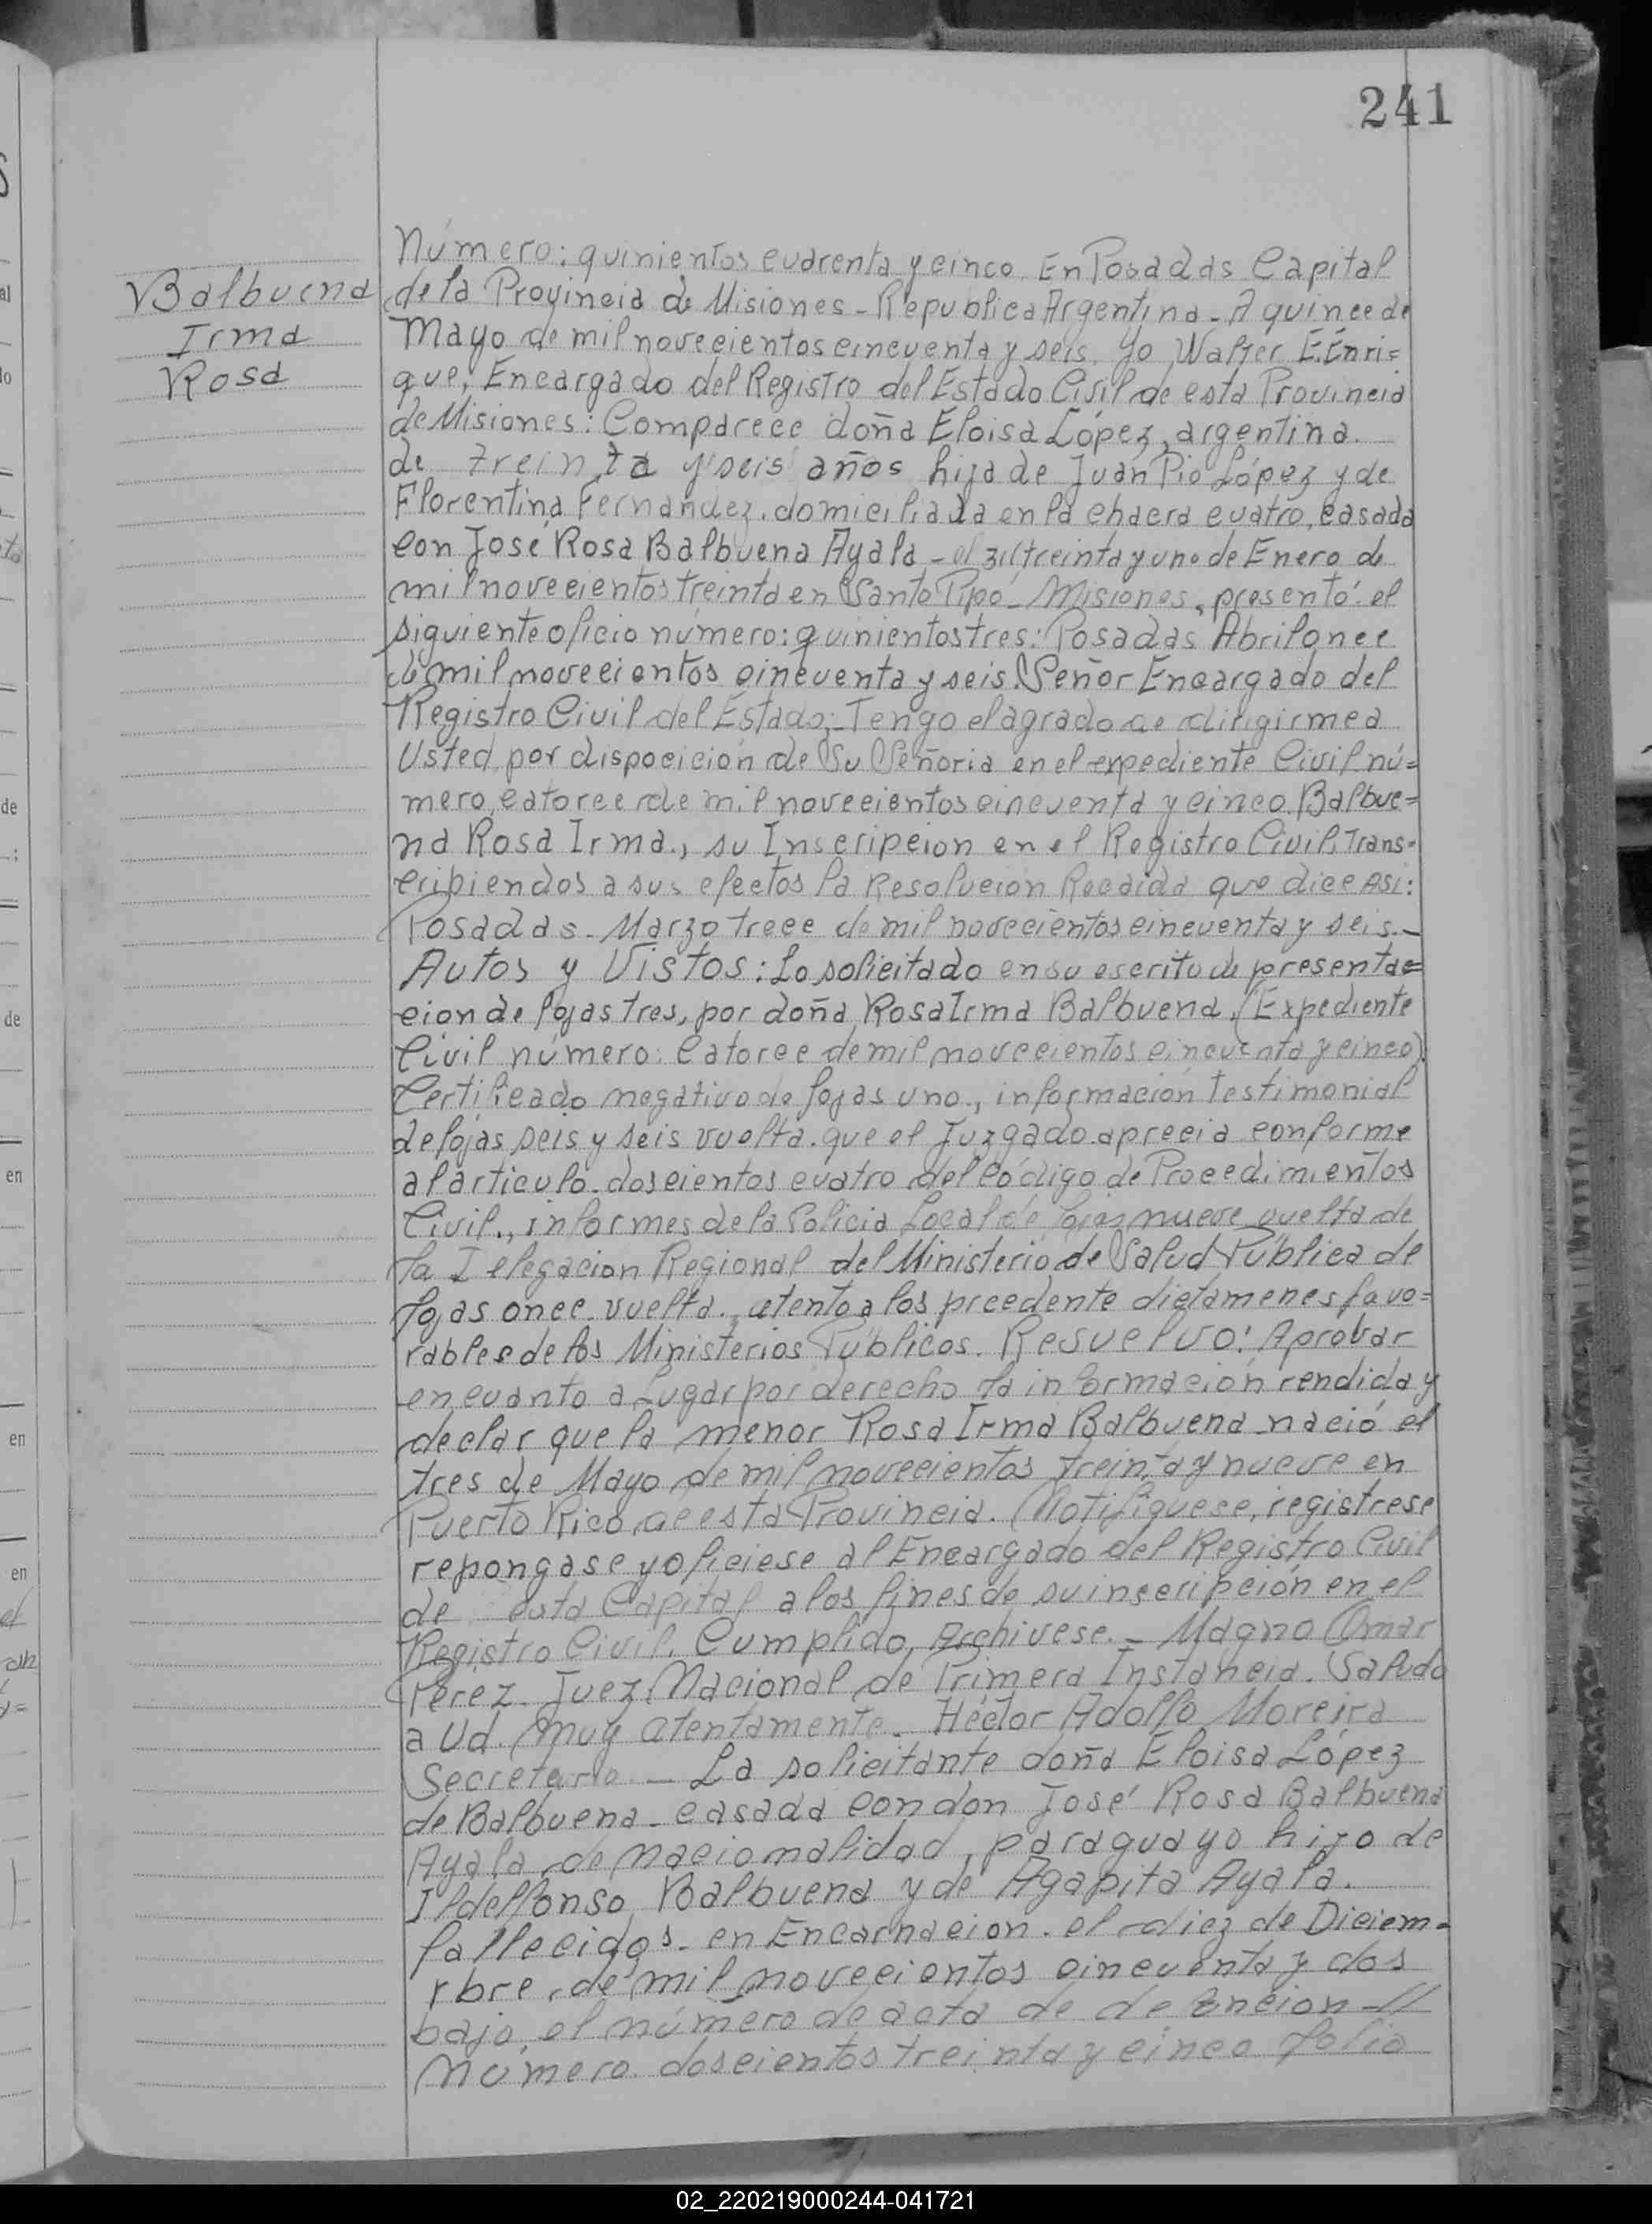 241
Balbuena
Irma
Rosa
Número: quinientos cuarenta y cinco. En Posadas Capital
de la Provincia de Misiones - Republica Argentina - A quince de
Mayo de mil novecientos cincuenta y seis. Yo Walter E. Enri=
que, Encargado del Registro del Estado Civil de esta Provincia
de Misiones: Comparece doña Eloisa López, argentina.
de treinta y seis años hija de Juan Pio López y de
Florentina Fernandez. domiciliada en la chacra cuatro, casada
con José Rosa Balbuena Ayala - el treinta y uno de Enero de
mil novecientos treinta en Santo Pipó - Misiones, presentó el
siguiente oficio número: quinientos tres: Posadas Abril once
de mil novecientos cincuenta y seis. Señor Encargado del
Registro Civil del Estado: Tengo el agrado de dirigirme a
Usted por dispocición de Su Señoria en el expediente Civil nú=
mero, catorce de mil novecientos cincuenta y cinco. Balbue=
na Rosa Irma., su Inscripcion en el Registro Civil, Trans=
cribiendos a sus efectos la Resolucion Recaida que dice Asi:
Posadas - Marzo trece de mil novecientos cincuenta y seis.-
Autos y Vistos: Lo solicitado en su escrito de presenta=
cion de fojas tres, por doña Rosa Irma Balbuena. (Expediente
Civil número: Catorce de mil novecientos cincuenta y cinco).
Certificado negativo de fojas uno., información testimonial
de fojas seis y seis vuelta. que el Juzgado aprecia conforme
al articulo. doscientos cuatro del Código de Procedimientos
Civil., informes de la Policia Local de fojas nueve vuelta de
la Delegacion Regional del Ministerio de Salud Pública de
fojas once vuelta., atento a los precedente dictamenes favo=
rables de los Ministerios Públicos. Resuelvo: Aprobar
en cuanto a Lugar por derecho la información rendida y
declar que la menor Rosa Irma Balbuena nació el
tres de Mayo de mil novecientos treinta y nueve en
Puerto Rico de esta Provincia. Notifiquese, registrese
repongase y oficiese al Encargado del Registro Civil
de esta Capital a los fines de su inscripción en el
Registro Civil. Cumplido, Archivese. - Magno Omar
Pérez - Juez Nacional de Primera Instancia. Saludo
a Ud. muy atentamente - Héctor Adolfo Moreira
Secretario - La solicitante doña Eloisa López
de Balbuena - casada con don José Rosa Balbuena
Ayala, de nacionalidad, paraguayo hijo de
Ildelfonso Balbuena y de Agapita Ayala.
fallecidos - en Encarnacion. el diez de Diciem=
bre, de mil novecientos cincuenta y dos
bajo el número de acta de de
Número doscientos treinta y cinco folio
02_220219000244-041721